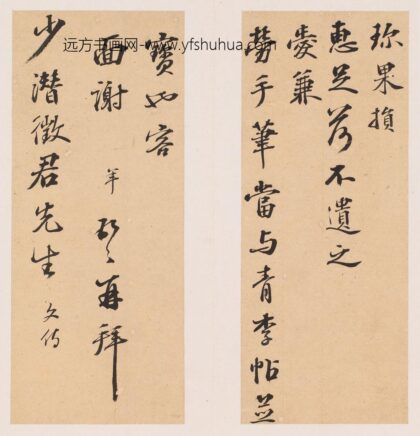 远方书画网-www.yfshuhua.com
珎果損
惠足荷不遺之
愛兼
勞手筆當与青李帖並
寶也容
面謝 年 再拜
少潛徵君先生 文侍